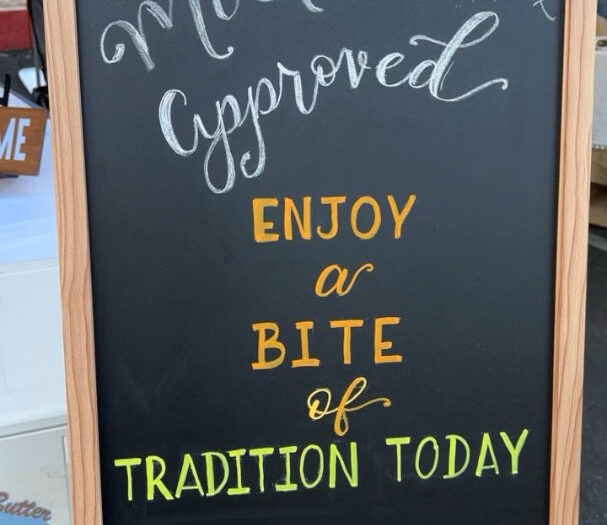 Approved
ENJOY
a
BITE
of
TRADITION TODAY
ME
Butter